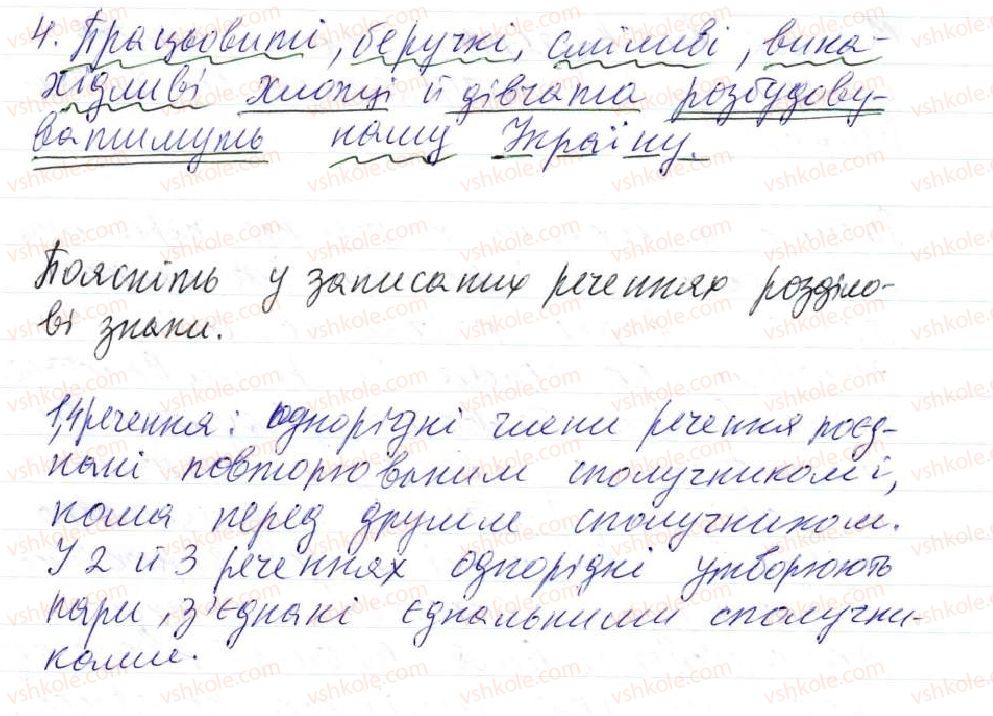 4. Працьовиті, беручкі, сміливі, вина-
хідливі хлопці й дівчата розбудову-
ватимуть нашу Україну.
Поясніть у записаних реченнях розділо-
ві знаки.
1,4 речення: однорідні члени речення поєд-
нані повторюваним сполучником і,
кома перед другим сполучником.
У 2 й 3 реченнях однорідні утворюють
пари, з'єднані єднальними сполучни-
ками.